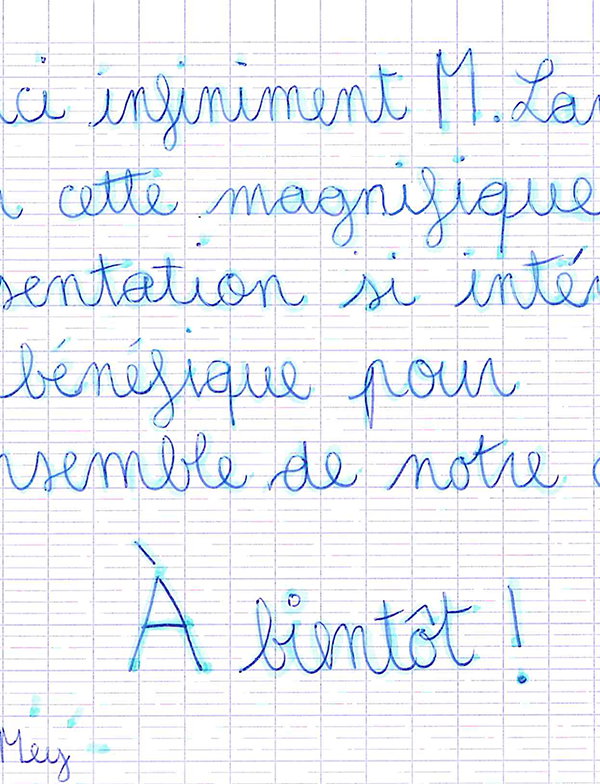 ci infiniment M. La
cette magnifique
sentation si inté
bénéfique pour
nsemble de notre
À bientôt !
Mey